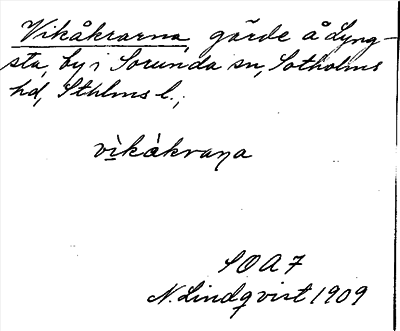 Vikåkrarna, gärde å Lyng-
sta, by i Sorunda sn, Sotholms
hd, Sthlms l.,
vìkåkraṇa
SOA 7
N. Lindqvist 1909